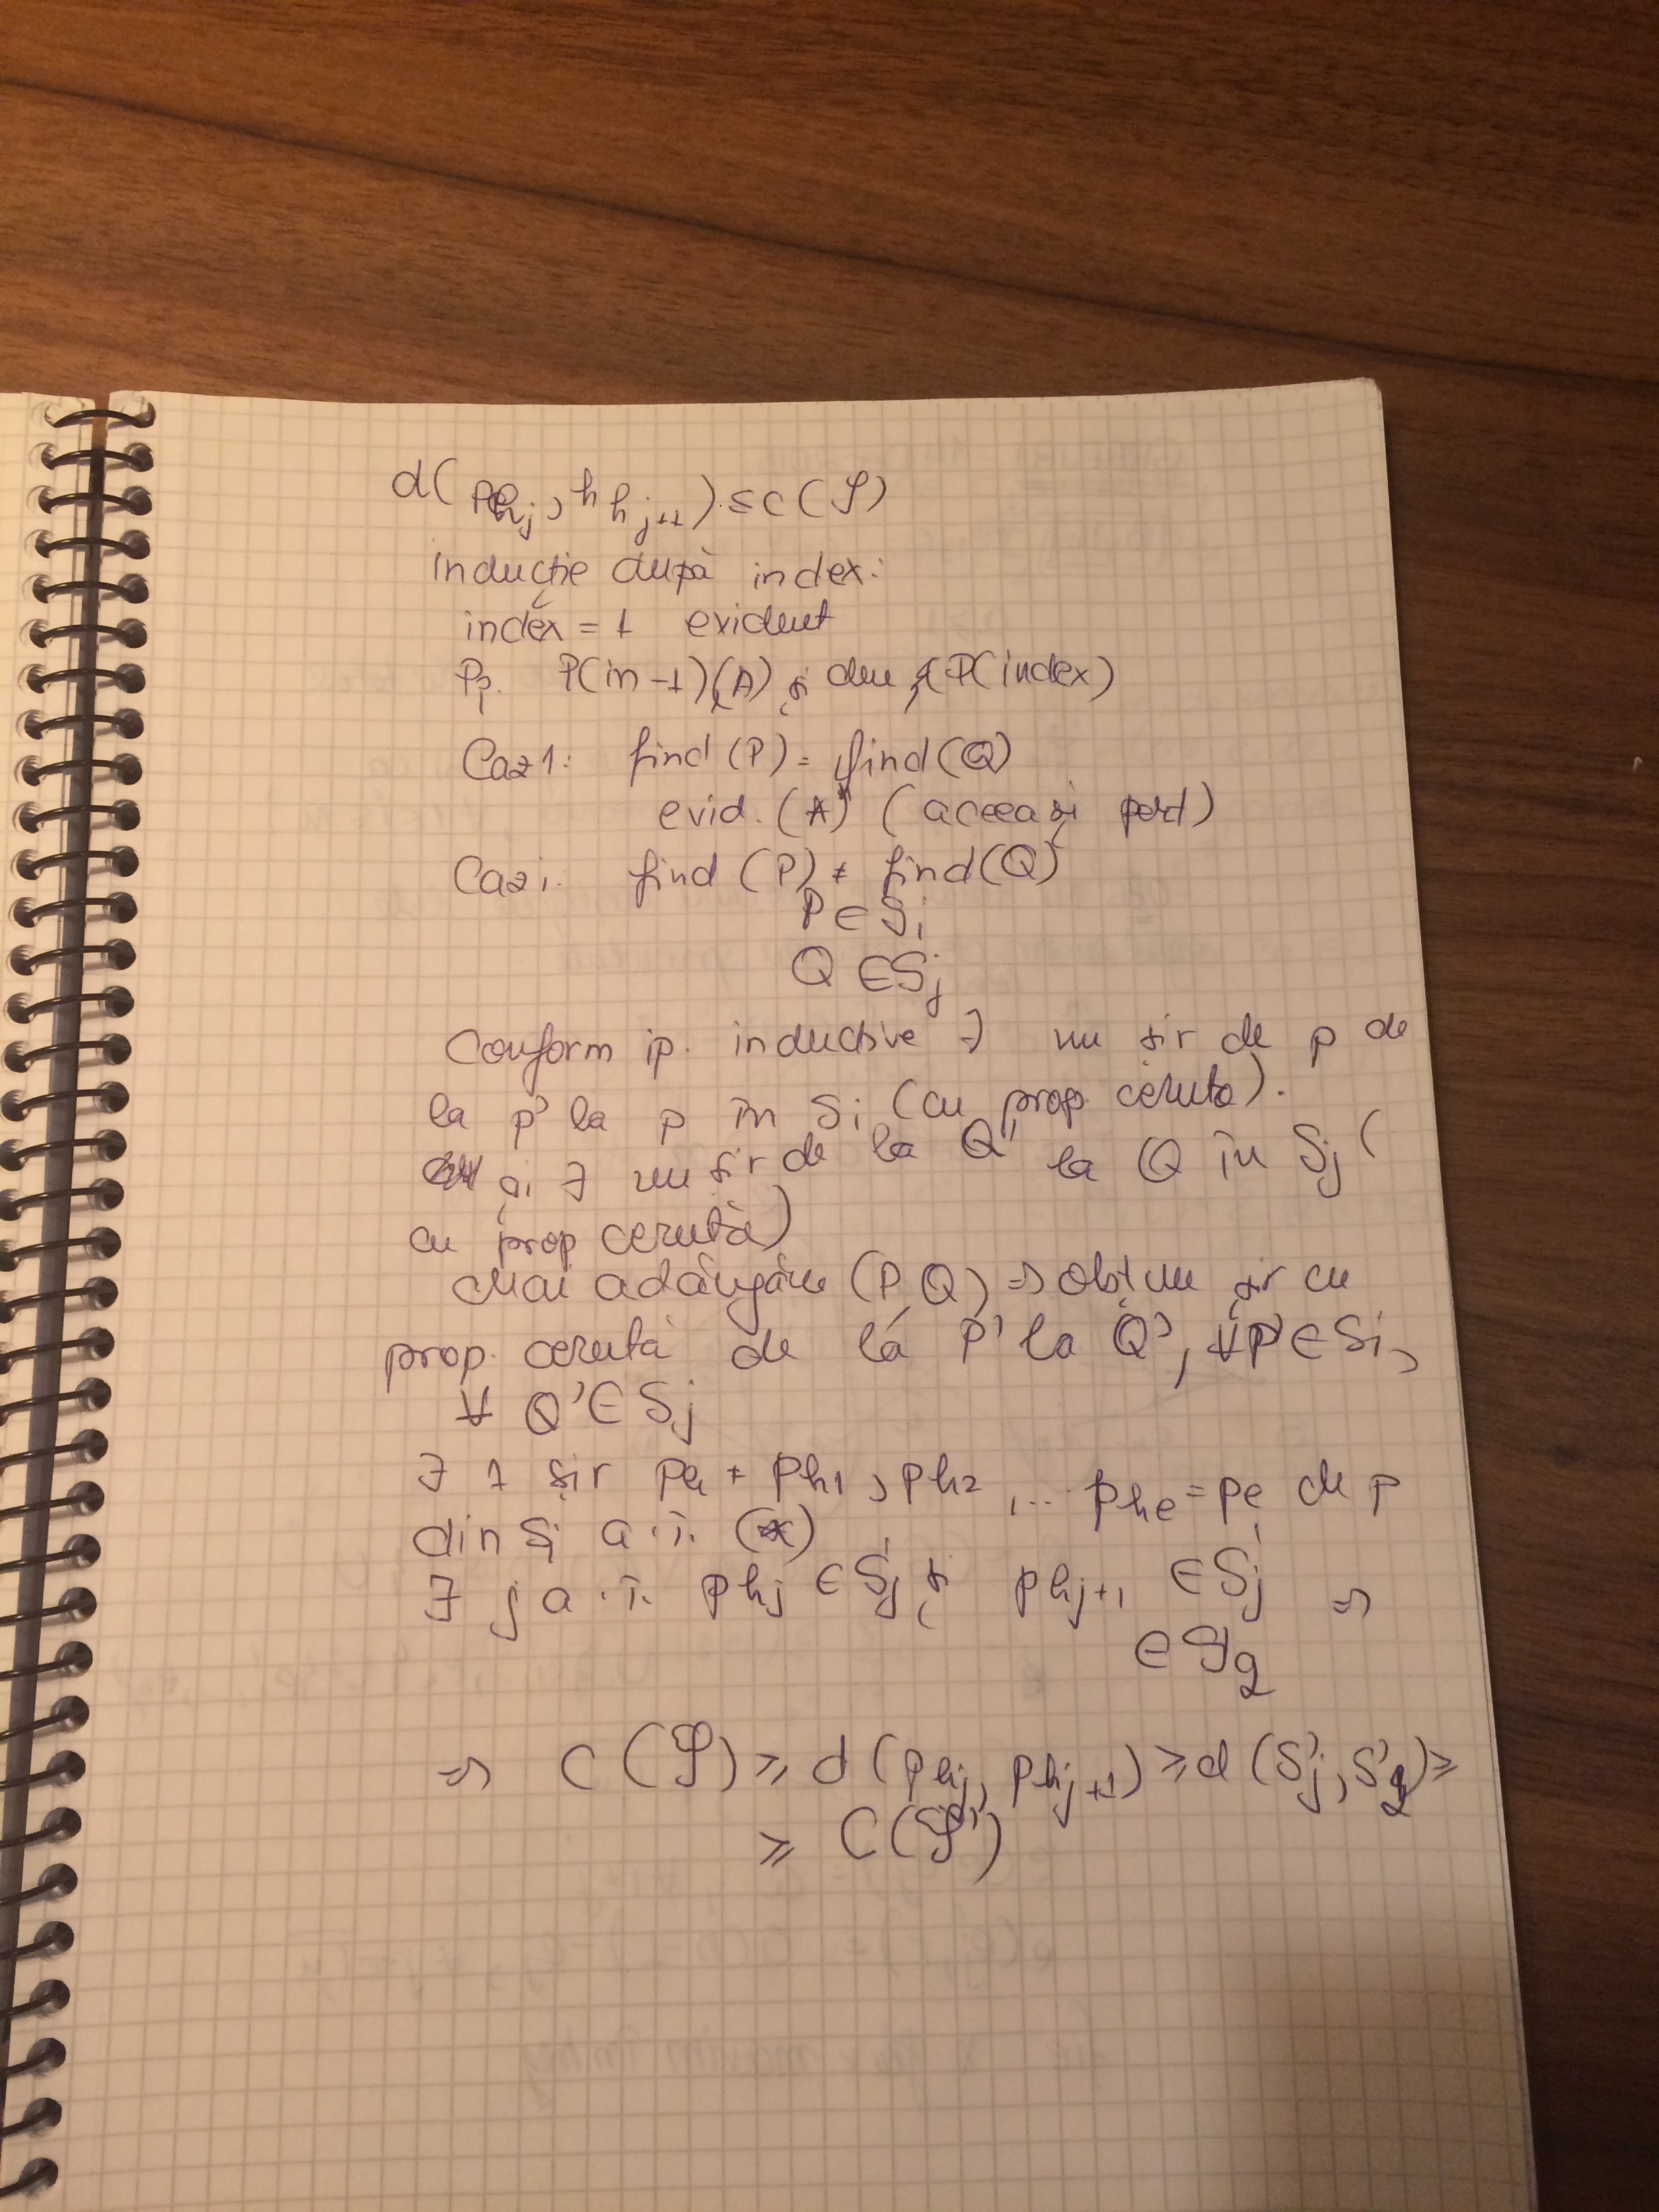 d(p_{h_j}, h_{h_{j+1}}) ≤ C(𝒮)
inducție după index:
index = 1 evident
Pp. P(in-1)(A) și dem P(index)
Caz1: find (P) = find(Q)
evid. (A) (aceeași part)
Caz i: find (P) ≠ find(Q)
P ∈ S_i
Q ∈ S_j
Conform ip. inductive ∃ un șir de p de
la p' la p în S_i (cu prop ceruta).
și ∃ un șir de la Q' la Q în S_j (
cu prop cerută)
Mai adăugăm (P, Q) ⇒ obținem șir cu
prop. cerută de la P' la Q', ∀ P' ∈ S_i,
∀ Q' ∈ S_j
∃ 1 șir p_k = p_{h1}, p_{h2}, ... p_{he} = p_e de p
din S_i a.î. (*)
∃ j a.î. p_{hj} ∈ S'_j și p_{hj+1} ∈ S'_j ⇒
∈ S'_q
⇒ C(𝒮) ≥ d(p_{hj}, p_{hj+1}) ≥ d(S'_j, S'_q) ≥
≥ C(𝒮')